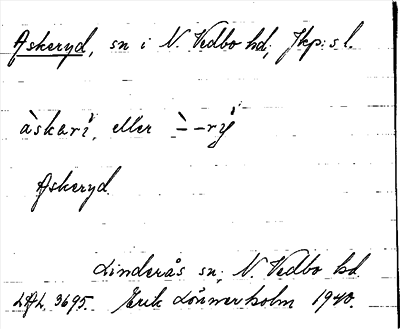 Askeryd, sn i N. Vedbo hd, Jkp:s l.
àskarí, eller ∸ - rý
Askeryd.
Linderås sn, N. Vedbo hd
LAL. 3695. Erik Lönnerholm 1940.